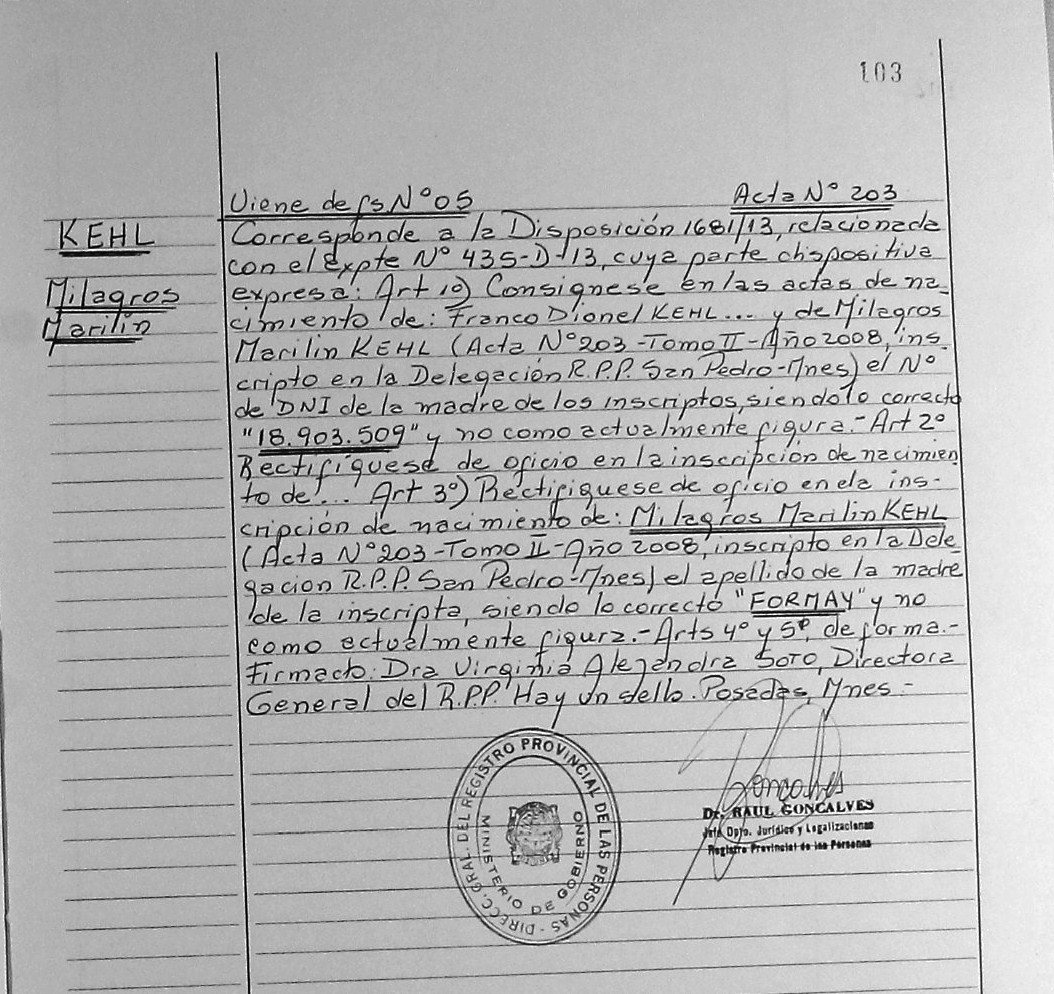 103
Viene de fs N° 05
Acta N° 203
KEHL
Milagros
Marilin
Corresponde a la Disposición 1681/13, relacionada
con el Expte N° 435-D-13, cuya parte dispositiva
expresa: Art 1º) Consignese en las actas de na-
cimiento de: Franco Dionel KEHL... y de Milagros
Marilin KEHL (Acta N° 203 - Tomo II - Año 2008, ins
cripto en la Delegación R.P.P. San Pedro-Mnes) el N°
de DNI de la madre de los inscriptos, siendo lo correcto
"18.903.509" y no como actualmente figura.- Art 2°
Rectifiquese de oficio en la inscripción de nacimien
to de... Art 3°) Rectifiquese de oficio en ela ins-
cripción de nacimiento de: Milagros Marilin KEHL
(Acta N° 203 - Tomo II - Año 2008, inscripto en la Dele
gacion R.P.P. San Pedro-Mnes) el apellido de la madre
de la inscripta, siendo lo correcto "FORMAY" y no
como actualmente figura.- Arts 4° y 5°, de forma.-
Firmado: Dra Virginia Alejandra SOTO, Directora
General del R.P.P. Hay un sello. Posadas, Mnes.-
DIRECC. GRAL. DEL REGISTRO PROVINCIAL DE LAS PERSONAS -
MINISTERIO DE GOBIERNO
Goncalves
Dr. RAUL GONCALVES
Jefe Dpto. Jurídico y Legalizaciones
Registro Provincial de las Personas